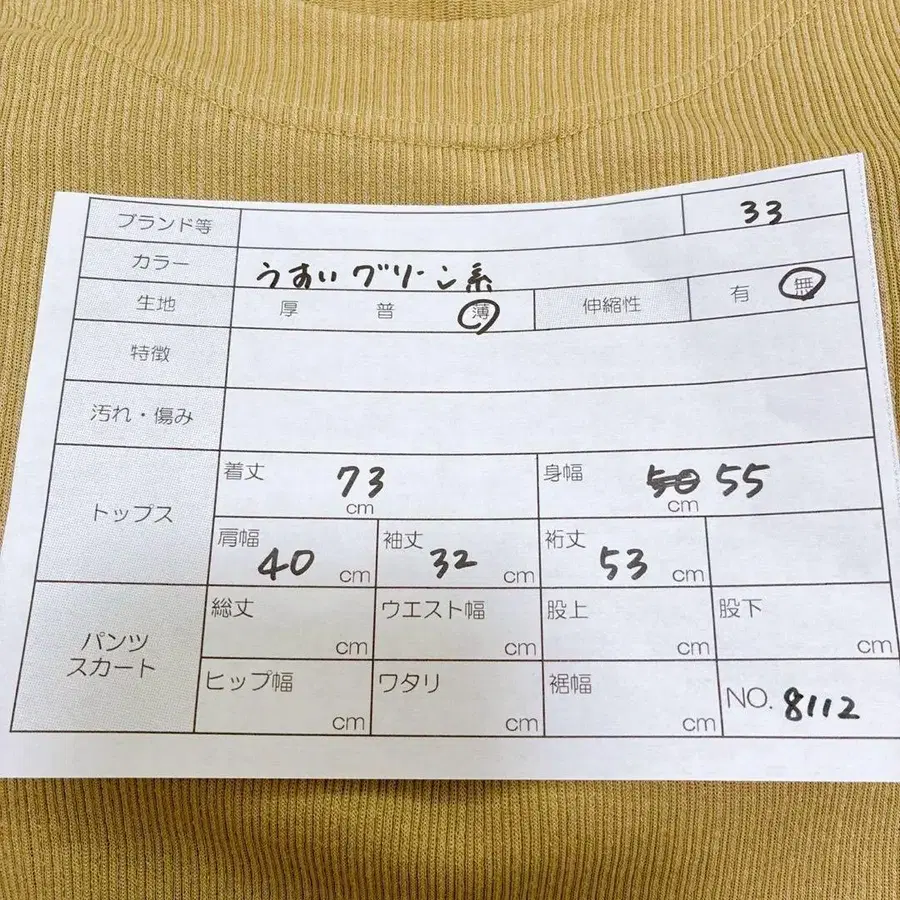 ブランド等 33
カラー うすいグリーン系
生地 厚 普 薄 伸縮性 有 無
特徴
汚れ・傷み
トップス
着丈 73 cm 身幅 50 55 cm
肩幅 40 cm 袖丈 32 cm 裄丈 53 cm
パンツ
スカート
総丈 cm ウエスト幅 cm 股上 cm 股下 cm
ヒップ幅 cm ワタリ cm 裾幅 cm NO. 8112